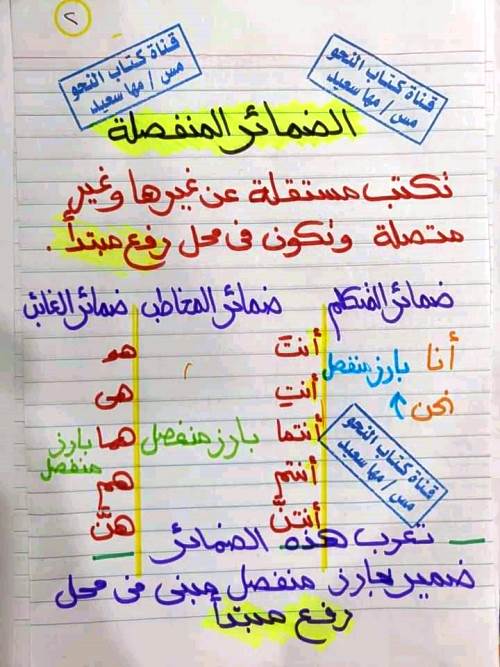 ٢
قناة كتاب النحو
مس / مها سعيد
قناة كتاب النحو
مس / مها سعيد
الضمائر المنفصلة
تكتب مستقلة عن غيرها وغير
متصلة وتكون فى محل رفع مبتدأ .
ضمائر المتكلم ضمائر المخاطب ضمائر الغائب
أنا بارز منفصل
نحن
أنتَ
أنتِ
أنتما بارز منفصل
أنتم
أنتنَّ
هو
هى
هما بارز منفصل
هم
هنَّ
قناة كتاب النحو
مس / مها سعيد
تعرب هذه الضمائر
ضمير بارز منفصل مبنى فى محل
رفع مبتدأ